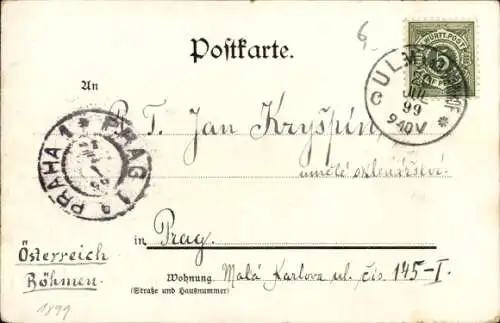 6
Postkarte.
K. WÜRTT. POST
5
ULM
JUL
99
9-10V
An
P. T. Jan Kryšpín
umělé sklenářství
PRAHA 1 * PRAG 1
in Prag.
Österreich
Böhmen.
Wohnung Malá Karlova ul. čís 145-I.
(Straße und Hausnummer)
1899